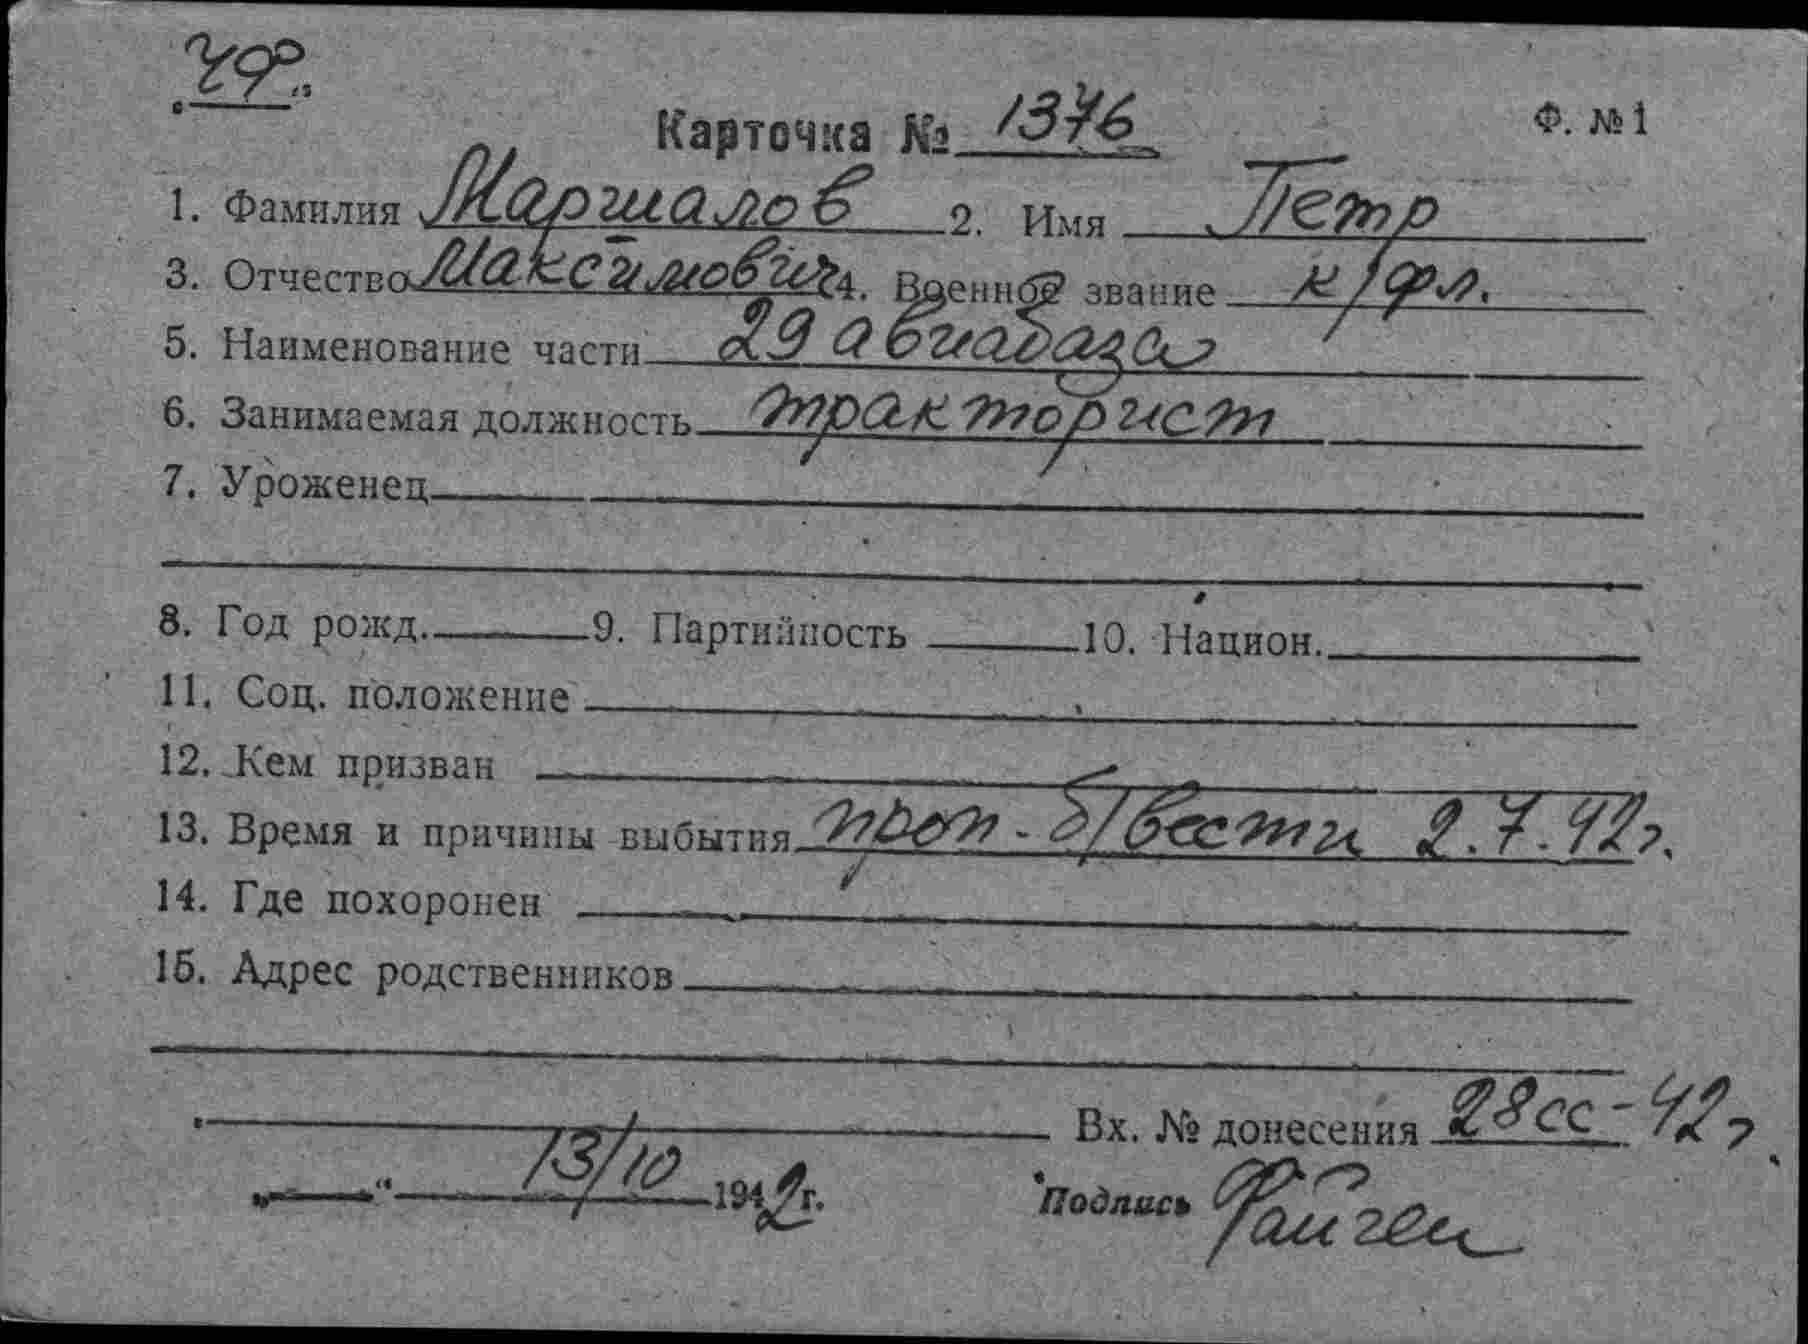 Карточка № 1376 Ф. № 1
1. Фамилия Маршалов 2. Имя Петр
3. Отчество Максимович 4. Военное звание к/фл.
5. Наименование части 29 авиабаза
6. Занимаемая должность тракторист
7. Уроженец
8. Год рожд. 9. Партийность 10. Национ.
11. Соц. положение
12. Кем призван
13. Время и причины выбытия проп. б/вести 2.7.42г.
14. Где похоронен
15. Адрес родственников
Вх. № донесения 28сс-42г
„ “ 13/10 1942г. Подпись